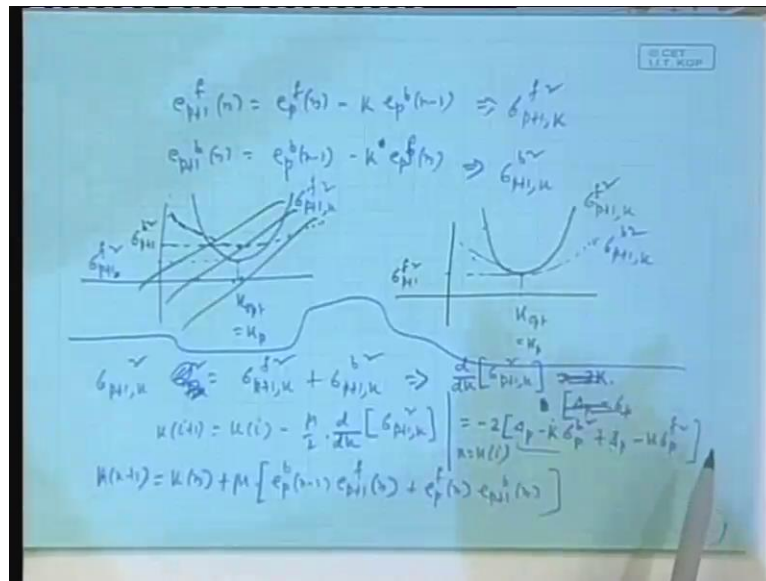 © CET
I.I.T. KGP
e_{p+1}^f(n) = e_p^f(n) - k e_p^b(n-1) ⇒ σ_{p+1,k}^{f²}
e_{p+1}^b(n) = e_p^b(n-1) - k e_p^f(n) ⇒ σ_{p+1,k}^{b²}
σ_{p+1}^{b²} σ_{p+1,k}^{f²}
σ_{p+1}^{f²}
k_{opt} = k_p
σ_{p+1,k}^{f²}
σ_{p+1,k}^{b²}
σ_{p+1}^{f²}
k_{opt} = k_p
σ_{p+1,k}^2 = σ_{p+1,k}^{f²} + σ_{p+1,k}^{b²} ⇒ d/dk [σ_{p+1,k}^2]
k(i+1) = k(i) - μ/2 · d/dk [σ_{p+1,k}^2] |_{k=k(i)} = -2[Δ_p - k σ_p^{b²} + Δ_p - k σ_p^{f²}]
k(n+1) = k(n) + μ [e_p^b(n-1) e_{p+1}^f(n) + e_p^f(n) e_{p+1}^b(n)]